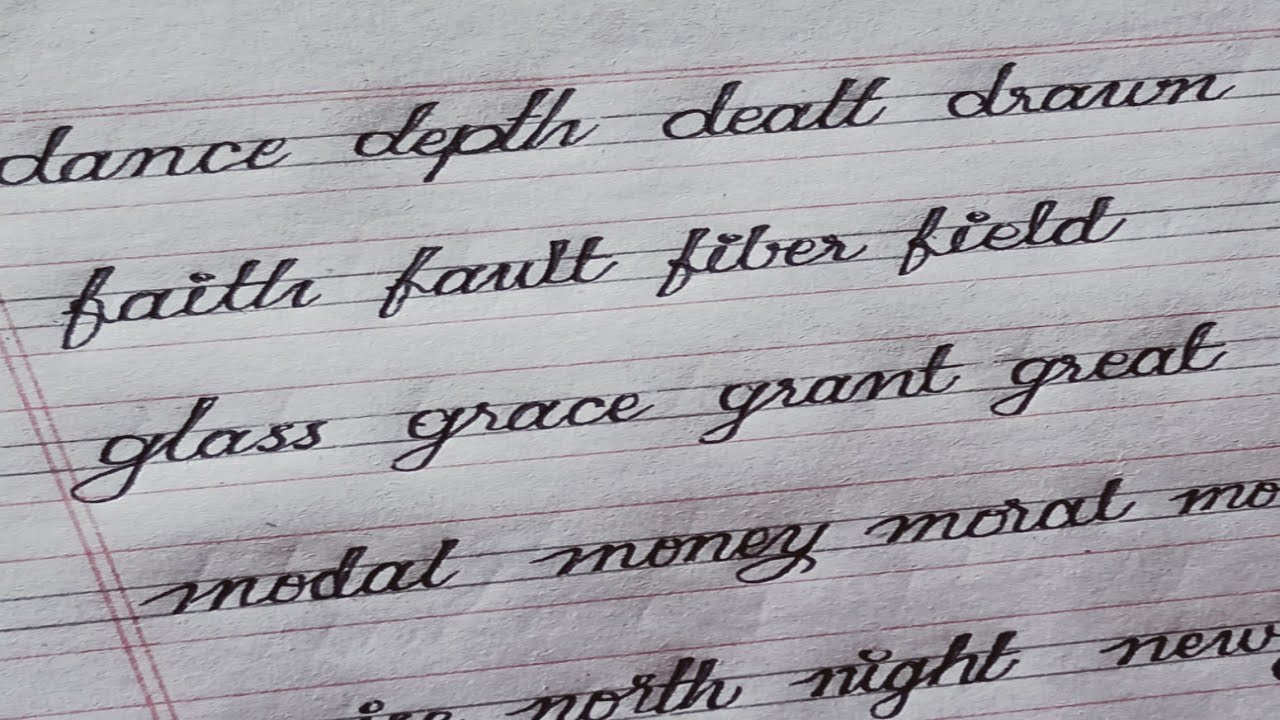 dance depth dealt drawn
faith fault fiber field
glass grace grant great
modal money moral
north night